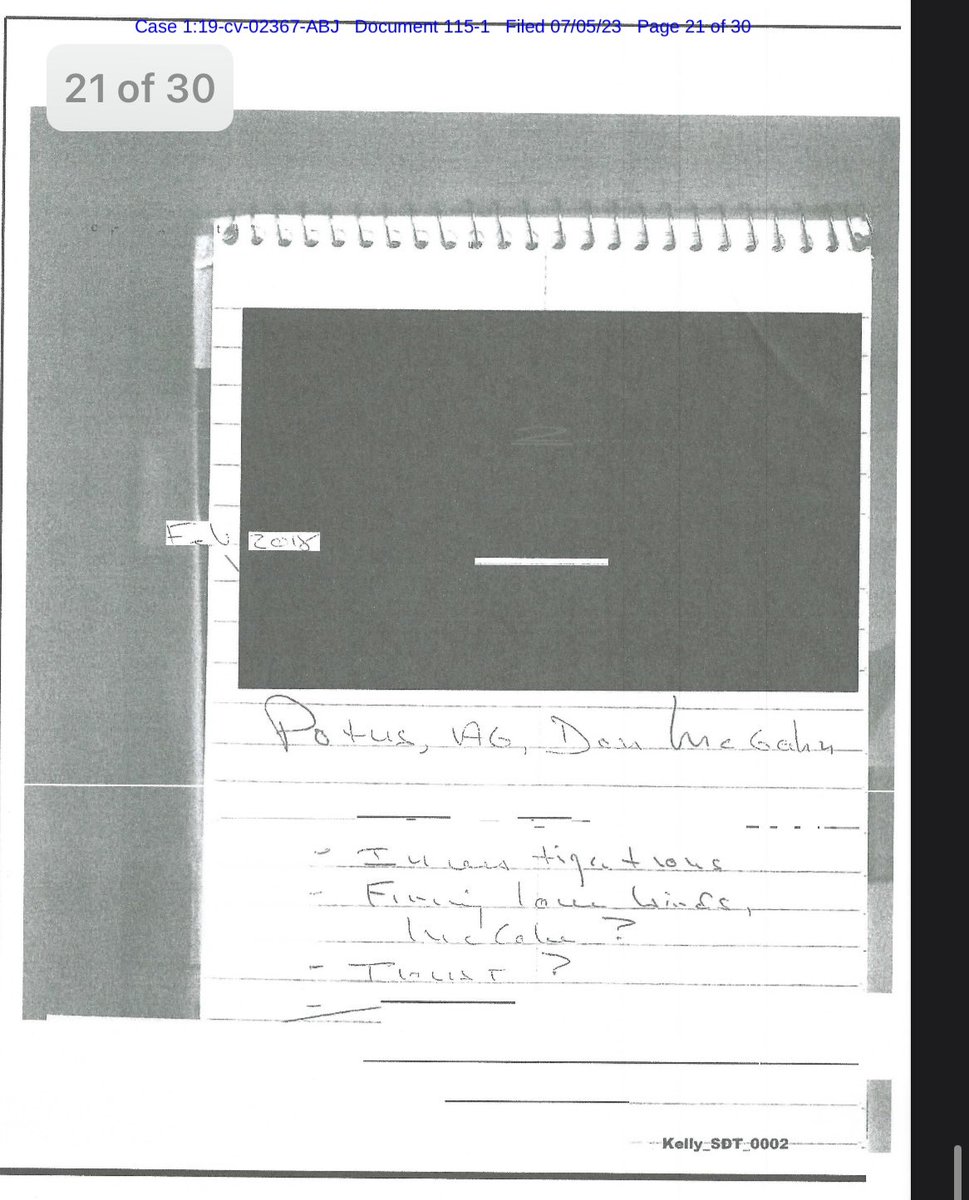 Case 1:19-cv-02367-ABJ Document 115-1 Filed 07/05/23 Page 21 of 30
21 of 30
Feb 2018
Potus, AG, Don McGahn
- Investigations
- Firing love birds,
McCabe ?
- Trust ?
-
Kelly_SDT_0002